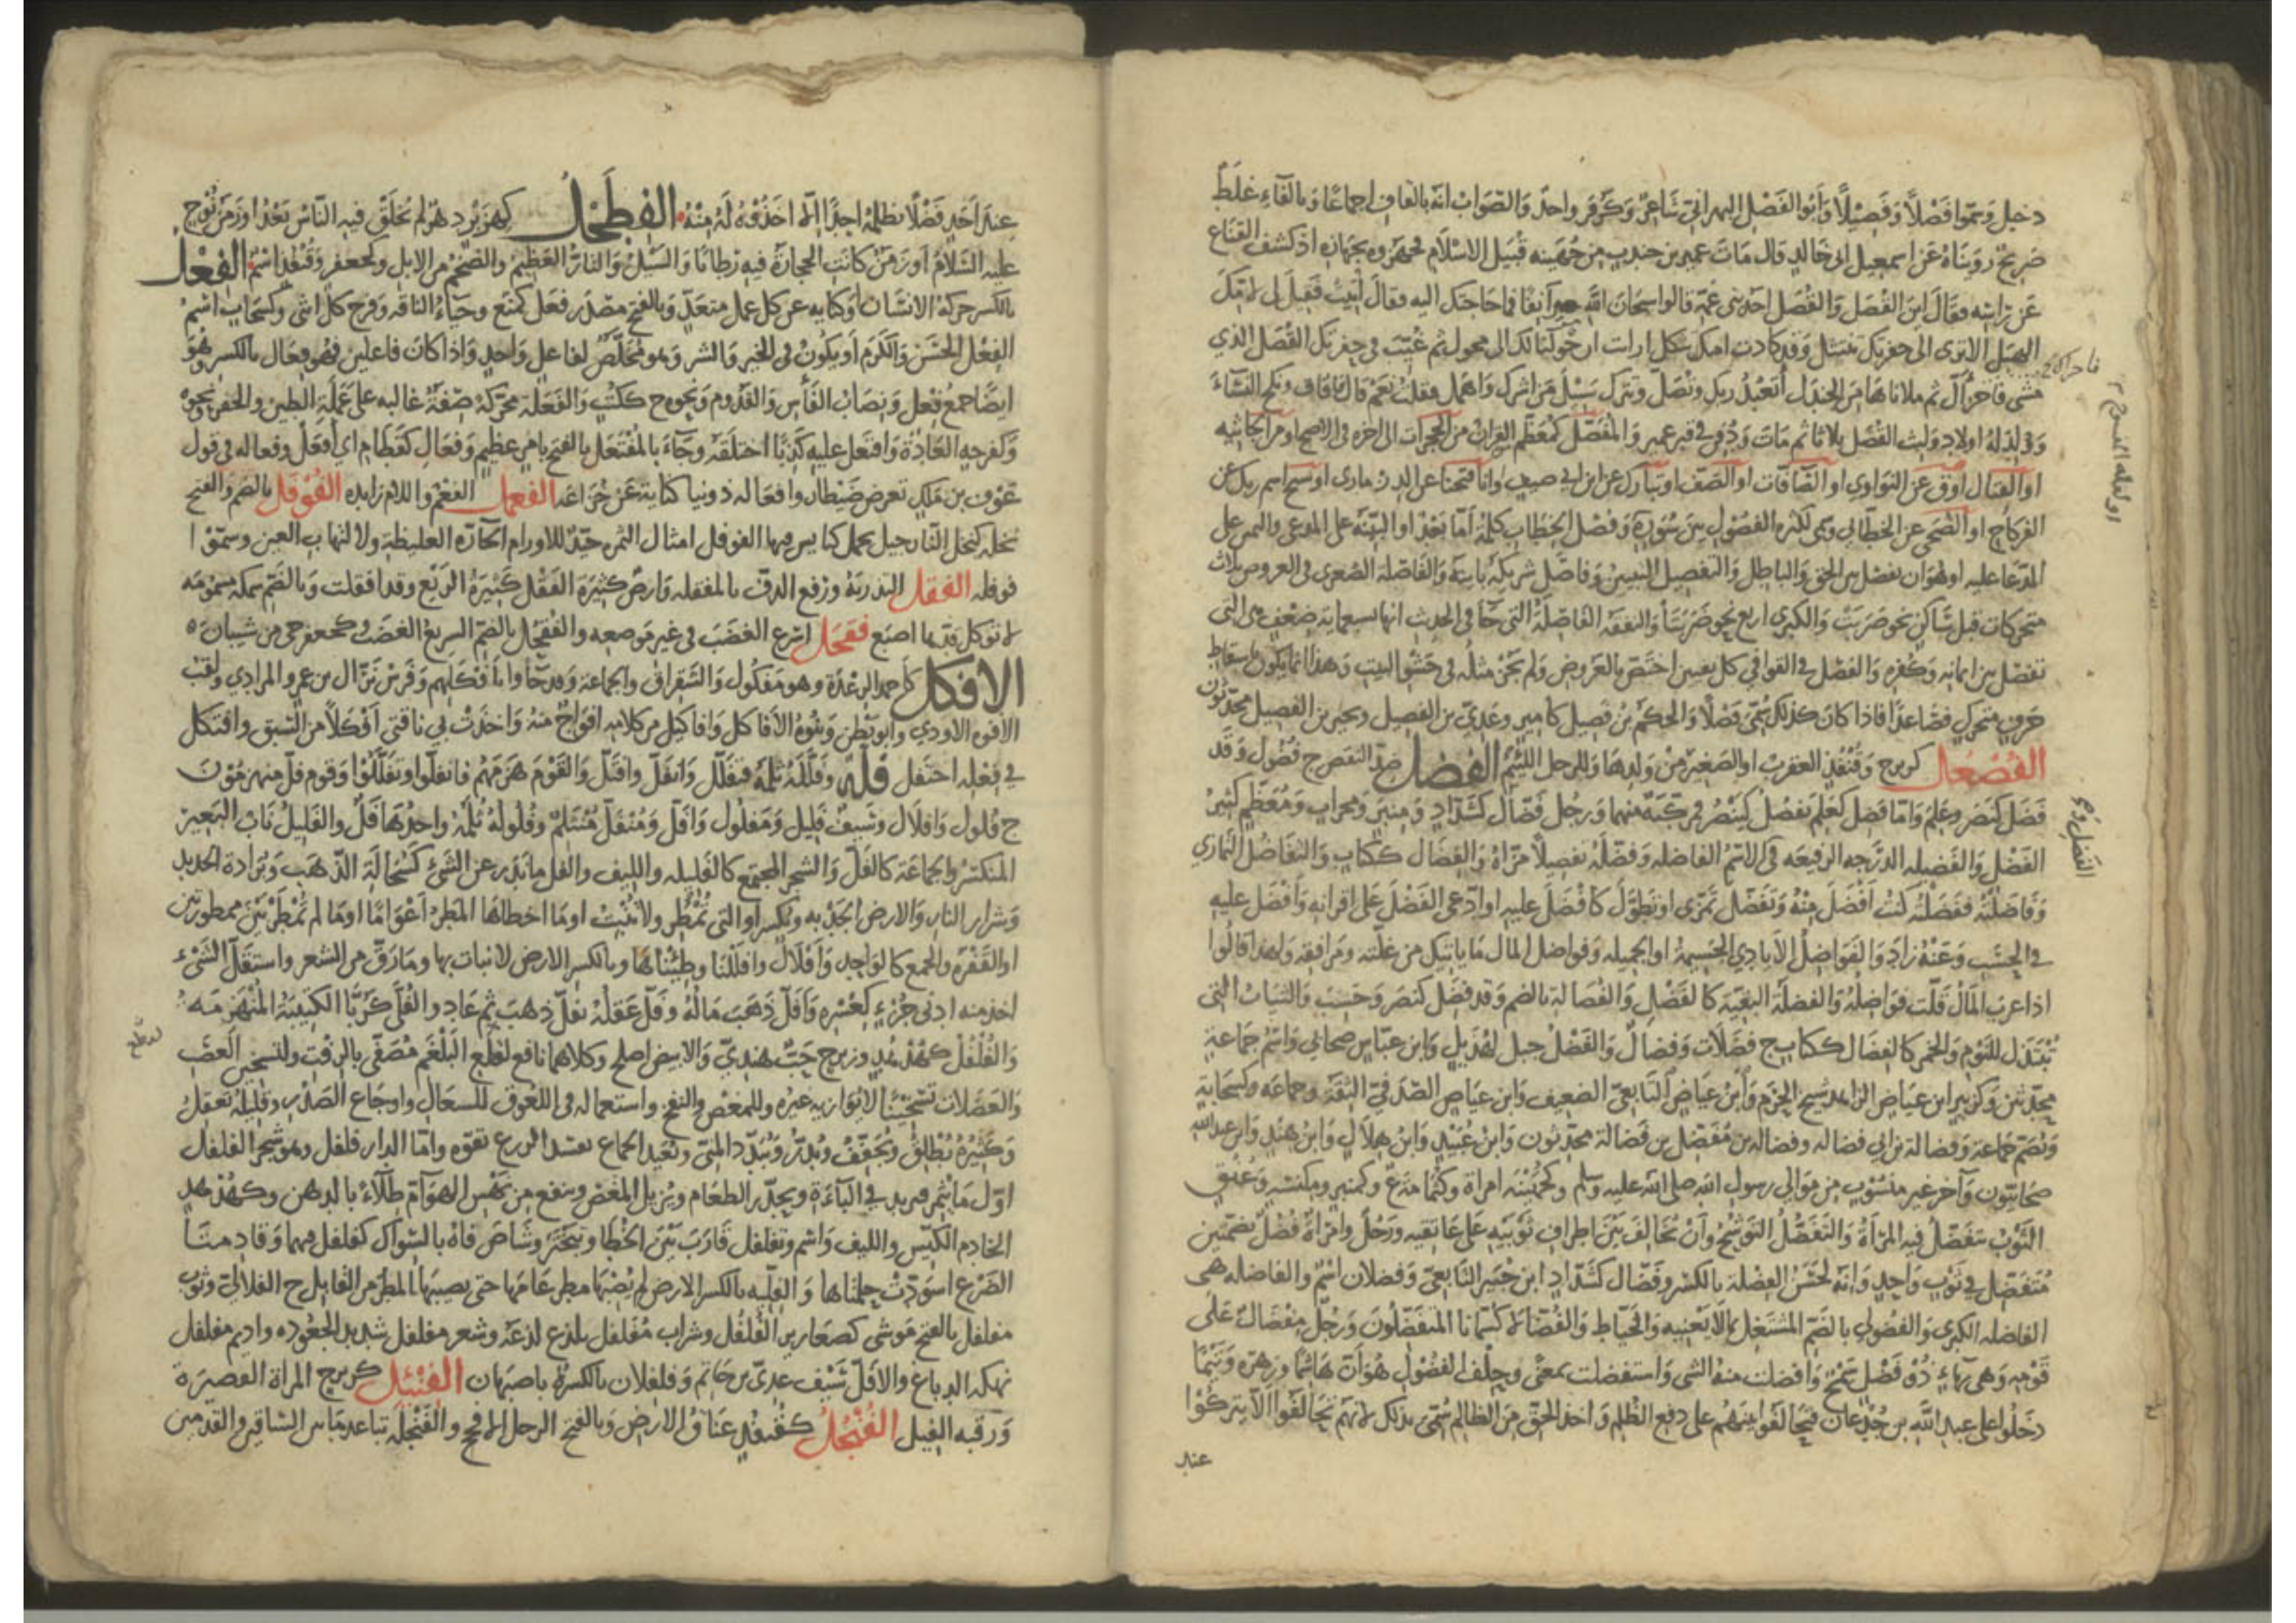 دخيل وسموا فضلا وفصيلا وأبو الفضل البهراني شاعر وكزفر واحد والصواب انه بالقاف اجماعا وبالفاء غلط
صريح رويناه عن اسمعيل ابن خالد قال مات عمير بن جندب من جهينة قبيل الاسلام فجهزوه بجهازه اذ كشف القناع
عن راسه فقال اين القصل والقصل احد بني عمه قالوا سبحان الله مر آنفا فما حاجتك اليه فقال أتيت فقيل لي لامك
الهبل الا ترى الى حفرتك تنتثل وقد كادت امك تثكل ارايت ان حولناك الى محول ثم غيب في حفرتك القصل الذي
مشى فاحزأل ثم ملاناها من الجندل أتعبد ربك وتصل وتترك سبيل من اشرك واضل فقلت نعم قال فافاق ونكح النساء
وولد له اولاد ولبث القصل ثلاثا ثم مات ودفن في قبر عمير والمفصل كمعظم القرآن من الحجرات الى اخره في الاصح او من الجاثية
او القتال او ق عن النواوي او الصافات او الصف او تبارك عن ابن ابي صيف او انا فتحنا عن الدزماري او سبح اسم ربك عن
الفركاح او الضحى عن الخطابي وسمي لكثرة الفصول بين سوره وفصل الخطاب كلمة أما بعد او البينة على المدعي واليمين على
المدعا عليه او هو ان يفصل بين الحق والباطل والتفصيل التبيين وفاصل شريكه باينه والفاصلة الصغرى في العروض ثلاث
متحركات قبل ساكن نحو ضربت والكبرى اربع نحو ضربتا والنفقة الفاصلة التي جا في الحديث انها بسبعماية ضعف هي التي
تفصل بين ايمانه وكفره والفصل في القوافي كل تغيير اختص بالعروض ولم يجز مثله في حشو البيت وهذا انما يكون باسقاط
حرف متحرك فصاعدا فاذا كان كذلك سمي فصلا والحكم بن فصيل كامير وعدي بن الفصيل وبحير بن الفصيل محدثون
الفصعل كزبرج وقنفذ العقرب او الصغير من ولدها وللرجل اللئيم الفضل ضد النقص ج فضول وقد
فضل كنصر وعلم واما فضل كعلم يفضل كينصر فمركبة منهما ورجل فضال كشداد ومنبر ومحراب ومعظم كثير
الفضل والفضيلة الدرجة الرفيعة في الاسم الفاضلة وفضله تفضيلا مزاه والفضال ككتاب والتفاضل التمازي
وفاضلته ففضلته كنت افضل منه وتفضل تمزى او تطول كافضل عليه او ادعى الفضل على اقرانه وافضل عليه
في الحسب وعنه زاد والفواضل الايادي الجسيمة او الجميلة وفواضل المال ما ياتيك من غلته ومرافقه ولهذا قالوا
اذا عزب المال قلت فواضله والفضلة البقية كالفضل والفضالة بالضم وقد فضل كنصر وحسب والثياب التي
تبتذل للنوم والخمر كالفضال ككتاب ج فضلات وفضال والفضل جبل لهذيل وابن عباس صحابي واسم جماعة
محدثين وكزبير ابن عياض الزاهد شيخ الحرم وابن عياض التابعي الضعيف وابن عياض الصدفي الثقة وجماعة وكسحابة
وتضم جماعة وفضالة بن ابي فضالة وفضالة بن مفضل بن فضالة محدثون وابن عبيد وابن هلال وابن هند وابن عبد الله
صحابيون وآخر غير منسوب من موالي رسول الله صلى الله عليه وسلم وكجهينة امراة وكثما مة ع وكمنبر ومكنسة وعنق
الثوب تتفضل فيه المراة والتفضل التوشح وان تخالف بين اطراف ثوبيه على عاتقيه ورجل وامراة فضل بضمتين
متفضل في ثوب واحد وانه لحسن الفضلة بالكسر وفضال كشداد ابن جبير التابعي وفضلان اسم والفاضلة هي
الفاضلة الكبرى والفضولي بالضم المشتغل بما لا يعنيه والخياط والفضلاء كسمانا المتفضلون ورجل مفضال على
قومه وهي بهاء ذو فضل سمح وافضلت منه الشي واستفضلت بمعنى وحلف الفضول هو ان هاشما وزهرة وتيما
دخلوا على عبد الله بن جدعان فتحالفوا بينهم على دفع الظلم واخذ الحق من الظالم سمي بذلك لانهم تحالفوا الا يتركوا
عند
الفضل م
عند أحد فضلا يظلمه احدا الا اخذوه له منه الفطحل كهزبر دهر لم تخلق فيه الناس بعد او زمن نوح
عليه السلام او زمن كانت الحجارة فيه رطابا والسيل والتار العظيم والضخم من الابل وكجعفر وقنفذ اسم الفعل
بالكسر حركة الانسان او كناية عن كل عمل متعد وبالفتح مصدر فعل كمنع وحياء الناقة وفرج كل انثى وكسحاب اسم
الفعل الحسن والكرم او يكون في الخير والشر وهو مخلص لفاعل واحد واذا كان فاعلين فهو فعال بالكسر وهو
ايضا جمع فعل ونصاب الفأس والقدوم ونحوه ج ككتب والفعلة محركة صفة غالبة على عملة الطين والحفر ونحوه
وكفرحة العادة وافتعل عليه كذبا اختلقه وجاء بالمفتعل بالفتح بامر عظيم وفعال كقطام اي افعل وفعاله في قول
عوف بن ملك تعرض ضيطار وافعاله دوننا كناية عن خزاعة الفعمل الفعم واللام زايدة الفوفل بالضم والفتح
نخلة كنخل النارجيل يحمل كبايس فيها الفوفل امثال التمر جيد للاورام الحارة الغليظة ولالتهاب العين وسموا
فوفله الفقل التذرية ورفع الدق بالمفقلة وارض كثيرة الفقل كثيرة الريع وقد افقلت وبالضم سمكة مسمومة
لا توكل قدرها اصبع فقحل اسرع الغضب في غير موضعه والفقحل بالضم السريع الغضب وكجعفر حي من شيبان
الافكل كاحمد الرعدة وهو مفكول والشقراق والجماعة وقد جاوا بافكلهم وفرس نزال بن عمرو المرادي ولقب
الافوه الاودي وابو بطن وبنوه الافاكل وافاكيل من كلامه افواج منه واخذت بي ناقتي افكلا من السبق وافتكل
في فعله احتفل فله وفلله ثلمه فتفلل وانفل وافتل والقوم هزمهم فانفلوا وتفللوا وقوم فل منهزمون
ج فلول وافلال وسيف فليل ومفلول وافل ومنفل منثلم وفلوله ثلمه واحدها فل والفليل ناب البعير
المنكسر والجماعة كالفل والشعر المجتمع كالفليلة والليف والفل ما ندر عن الشئ كسحالة الذهب وبرادة الحديد
وشرار النار والارض الجدبة ويكسر او التي تمطر ولا تنبت او ما اخطاها المطر اعواما او ما لم تمطر بين ممطورتين
او القفرة والجمع كالواحد وافلال وافللنا وطئناها وبالكسر الارض لا نبات بها وما رق من الشعر واستفل الشئ
اخذ منه ادنى جزء كعشره وافل ذهب ماله وفل عقله يفل ذهب ثم عاد والفلى كربى الكتيبة المنهزمة
والفلفل كهدهد وزبرج حب هندي والابيض اصلح وكلاهما نافع لقلع البلغم مضغا بالزفت ولتسخين العصب
والعضلات تسخينا لا يوازيه غيره وللمغص والنفخ واستعماله في اللعوق للسعال واوجاع الصدر وقليله يعقل
وكثيره يطلق ويجفف ويدر ويبدد المني بعد الجماع يفسد الزرع بقوة واما الدار فلفل وهو شجر الفلفل
اول ما يثمر فيزيد في الباءة ويحدر الطعام ويزيل المغص وينفع من نهس الهوام طلاء بالدهن وكهدهد
الخادم الكيس والليف واسم وتفلفل قارب بين الخطا وتبختر وشاص فاه بالسواك كفلفل فيهما وقادمتا
الضرع اسودت حلمتاها والفلية بالكسر الارض لم يصبها مطر عامها حتى يصيبها المطر من القابل ج الفلالي وثوب
مفلفل بالفتح موشى كصعارير الفلفل وشراب مفلفل يلذع لذعه وشعر مفلفل شديد الجعودة واديم مفلفل
نهكه الدباغ والافل سيف عدي بن حاتم وفلفلان بالكسر ة باصبهان الفنئل كزبرج المراة القصيرة
ورقبة الفيل الفنجل كقنفذ عناق الارض وبالفتح الرجل الافحج والفنجلة تباعد ما بين الساقين والقدمين